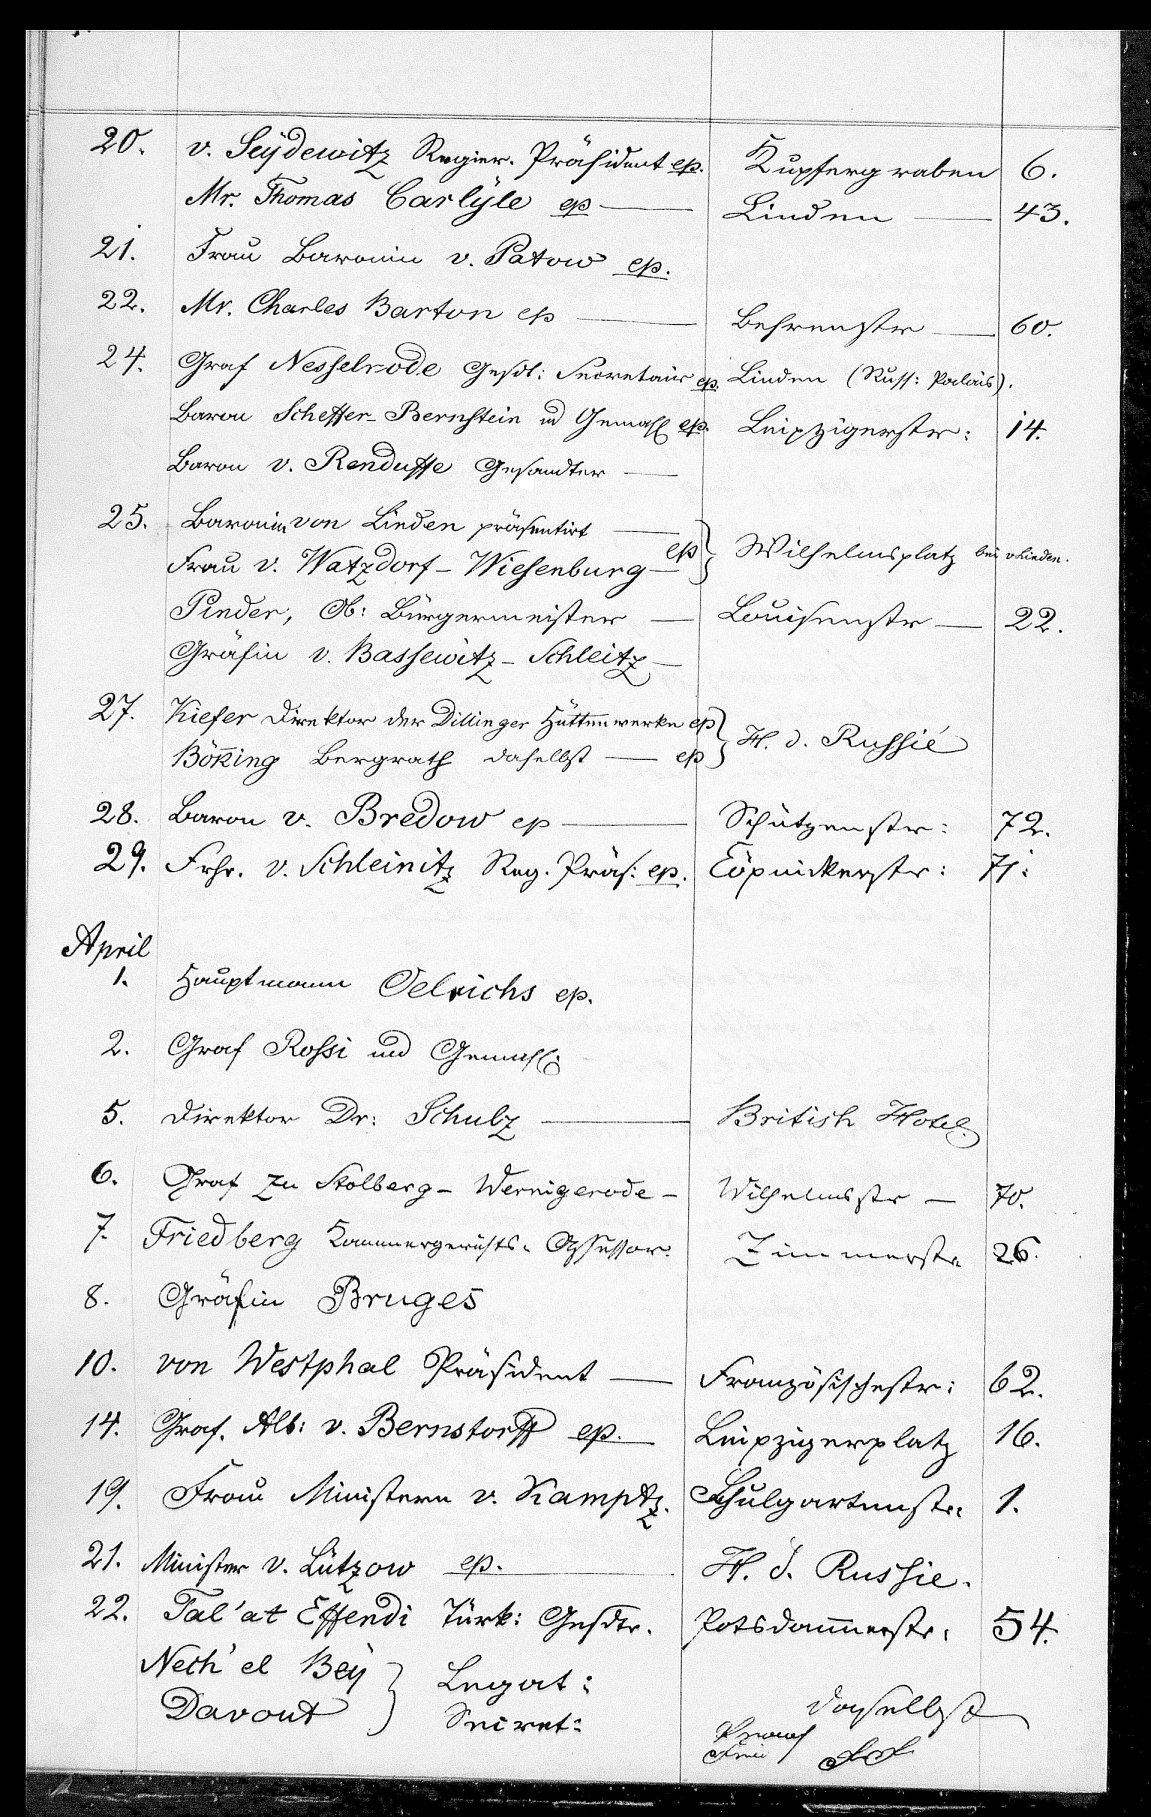 20. v. Seydewitz Regier. Präsident ep. Kupfergraben 6.
Mr. Thomas Carlyle ep — Linden — 43.
21. Frau Baronin v. Patow ep.
22. Mr. Charles Barton ep — Behrenstr — 60.
24. Graf Nesselrode Gesdt: Secretair ep. Linden (Russ: Palais).
Baron Scheffer-Bernstein und Gemahl ep. Leipzigerstr: 14.
Baron v. Renduffe Gesandter —
25. Baronin von Linden präsentirt —
Frau v. Watzdorf-Wiesenburg — ep } Wilhelmsplatz bei v Linden.
Pinder, Ob: Bürgermeister — Louisenstr — 22.
Gräfin v. Bassewitz-Schleitz —
27. Kiefer Direktor der Dillinger Hüttenwerke ep
Böking Bergrath daselbst — ep } H. d. Russié
28. Baron v. Bredow ep — Schützenstr: 72.
29. Frhr. v. Schleinitz Reg. Präs: ep. Cöpnickerstr: 71.
April
1. Hauptmann Oelrichs ep.
2. Graf Rossi und Gemahl:
5. Direktor Dr: Schulz — British Hotel.
6. Graf zu Stolberg-Wernigerode — Wilhelmsstr — 70.
7. Friedberg Kammergerichts-Assessor. Zimmerstr. 26.
8. Gräfin Bruges
10. von Westphal Präsident — Französischestr: 62.
14. Graf. Alb: v. Bernstorff ep. Leipzigerplatz 16.
19. Frau Ministern v. Kamptz. Schulgartenstr. 1.
21. Minister v. Lützow ep. H. d. Russie.
22. Tal'at Effendi Türk: Gesdtr. Potsdammerstr. 54.
Nech'el Bey } Legat:
Davout Secret: daselbst